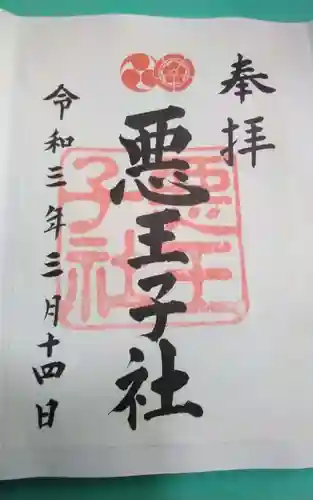 奉拝
悪王子社
悪王子社
令和三年三月十四日